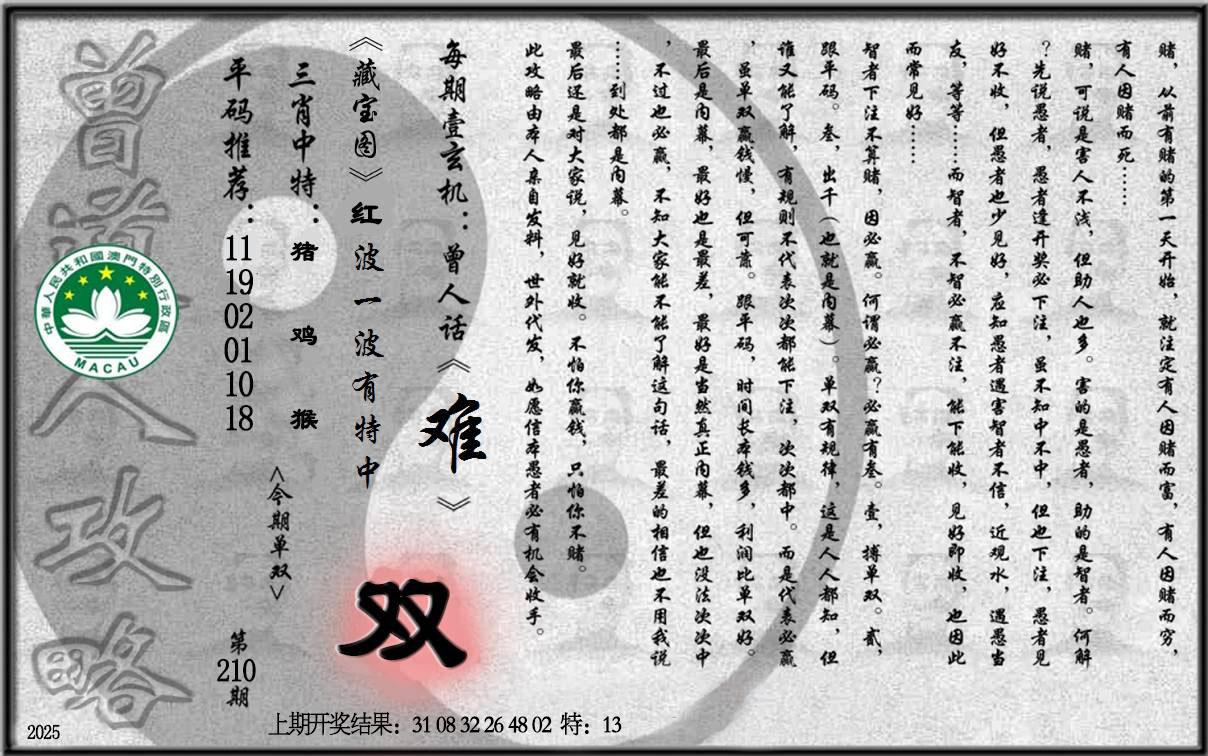 赌，从前有赌的第一天开始，就注定有人因赌而富，有人因赌而穷，
有人因赌而死……
赌，可说是害人不浅，但助人也多。害的是愚者，助的是智者。何解
？先说愚者，愚者逢开奖必下注，虽不知中不中，但也下注，愚者见
好不收，但愚者也少见好，应知愚者遇害智者不信，近观水，遇愚当
友，等等……而智者，不智必赢不注，能下能收，见好即收，也因此
而常见好……
智者下注不算赌，因必赢。何谓必赢？必赢有叁。壹，搏单双。贰，
跟平码。叁，出千（也就是内幕）。单双有规律，这是人人都知，但
谁又能了解，有规则不代表次次都能下注，次次都中。而是代表必赢
，虽单双赢钱慢，但可靠。跟平码，时间长本钱多，利润比单双好。
最后是内幕，最好也是最差，最好是当然真正内幕，但也没法次次中
，不过也必赢，不知大家能不能了解这句话，最差的相信也不用我说
……到处都是内幕。
最后还是对大家说，见好就收。不怕你赢钱，只怕你不赌。
此攻略由本人亲自发料，世外代发，如愿信本愚者必有机会收手。
每期壹玄机：曾人话《难》
《藏宝图》红波一波有特中
双
三肖中特：猪 鸡 猴
<今期单双>
平码推荐：11 19 02 01 10 18
第210期
曾道人攻略
中華人民共和國澳門特別行政區
MACAU
2025
上期开奖结果：31 08 32 26 48 02 特：13